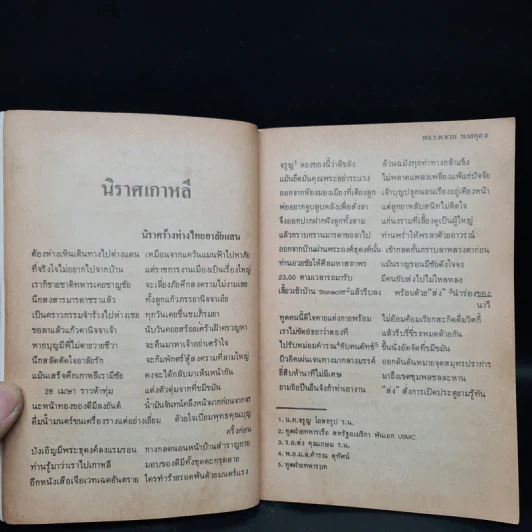 นิราศเกาหลี
นิราศร้างห่างไทยอาลัยแสน
ต้องห่างเหินเดินทางไปต่างแดน เหมือนจากแคว้นแมนฟ้าไปหาภัย
ที่จริงใจไม่อยากไปจากบ้าน แต่ราชการงานเมืองเป็นเรื่องใหญ่
เราก็ชายชาติทหารเคยชาญชัย จะเลี่ยงภัยคิดสงความไม่งามเลย
นึกสงสารมารดาชราแล้ว ทั้งลูกแก้วภรรยานิจจาเอ๋ย
เป็นคราวกรรมจำร้างไปห่างเชย ทุกวันเคยชื่นชมภิรมยา
ขอลาแล้วแก้วตานิจจาเจ้า นับวันคอยสร้อยเศร้าเฝ้าครวญหา
หากบุญมีพี่ไม่ตายวายชีวา จะคืนมาหาเจ้าอย่าเศร้าใจ
นึกสลัดตัดใจอาลัยรัก จะก้มพักตร์สู้สงครามที่ลามใหญ่
แม้นเสร็จศึกเกาหลีเรามีชัย คงจะได้กลับมาเห็นหน้ากัน
28 เมษา ราวห้าทุ่ม แต่งตัวตุ้มจากที่ขมีขมัน
นะหน้าทองของดีมีลงยันต์ น้ำมันจันทน์คลึงหน้าผากก่อนจากจร
ดื่มน้ำมนตร์ขนเครื่องรางแต่อย่างเยี่ยม ด้วยใจเปี่ยมพุทธคุณ
บังเอิญมีพระธุดงค์ลงแรมรอน กางกลดนอนหน้าบ้านสำราญกาย
ท่านรู้มาว่าเราไปเกาหลี มอบของดีมีทั้งชุดตะกรุดลาย
อีกหนังสือเจ้อเวทเฉดอันตราย ใครทำร้ายรอดพ้นด้วยมนต์แรง
พล.ร.ต.จวบ หงสกุล 9
จรูญ¹ ลองของนี้ว่าดีขลัง ล้วนฉมังทุกท่าทางกล้าแข็ง
แม้นยึดมั่นคุณพระอย่าระแวง ไม่พลาดแพลงเพลี่ยงแพ้แก่ปัจจัย
ออกจากห้องมองเมียงที่เตียงลูก เจ้าบุญปลูกนอนเรียงอยู่เคียงหน้า
พ่ออยากจูบลูบหลังเพื่อสั่งลา แต่ลูกยาหลับสนิทไม่คิดใจ
23.00 ตามเวลารถมารับ มีคนขับส่งไปไม่ไหลหลง
เลี้ยวเข้าบ้าน Stonecliff²แล้วรีบลง พร้อมด้วย "ส่ง" ³นำร่องของ
นาวี
ทูตคนนี้ดีใจหายแต่งกายพร้อม ไม่อ้อมค้อมเรียกสะกิดดื่มวิสกี้
เราไม่ขัดอัธยาว่าสองที แล้วรีบรี่ขึ้นรถหมดด้วยกัน
ไปรับหม่อมคำรณ⁴กับคนศักดิ์⁵ ขึ้นนั่งอัดจัดที่ขมีขมัน
1. น.ท.จรูญ โอสถรูป ร.น.
2. ทูตฝ่ายทหารเรือ สหรัฐอเมริกา พันเอก USMC.
3. ร.อ.ส่ง คุณเกษม ร.น.
4. พ.อ.ม.ล.คำรณ สุทัศน์
5. ทูตฝ่ายทหารบก